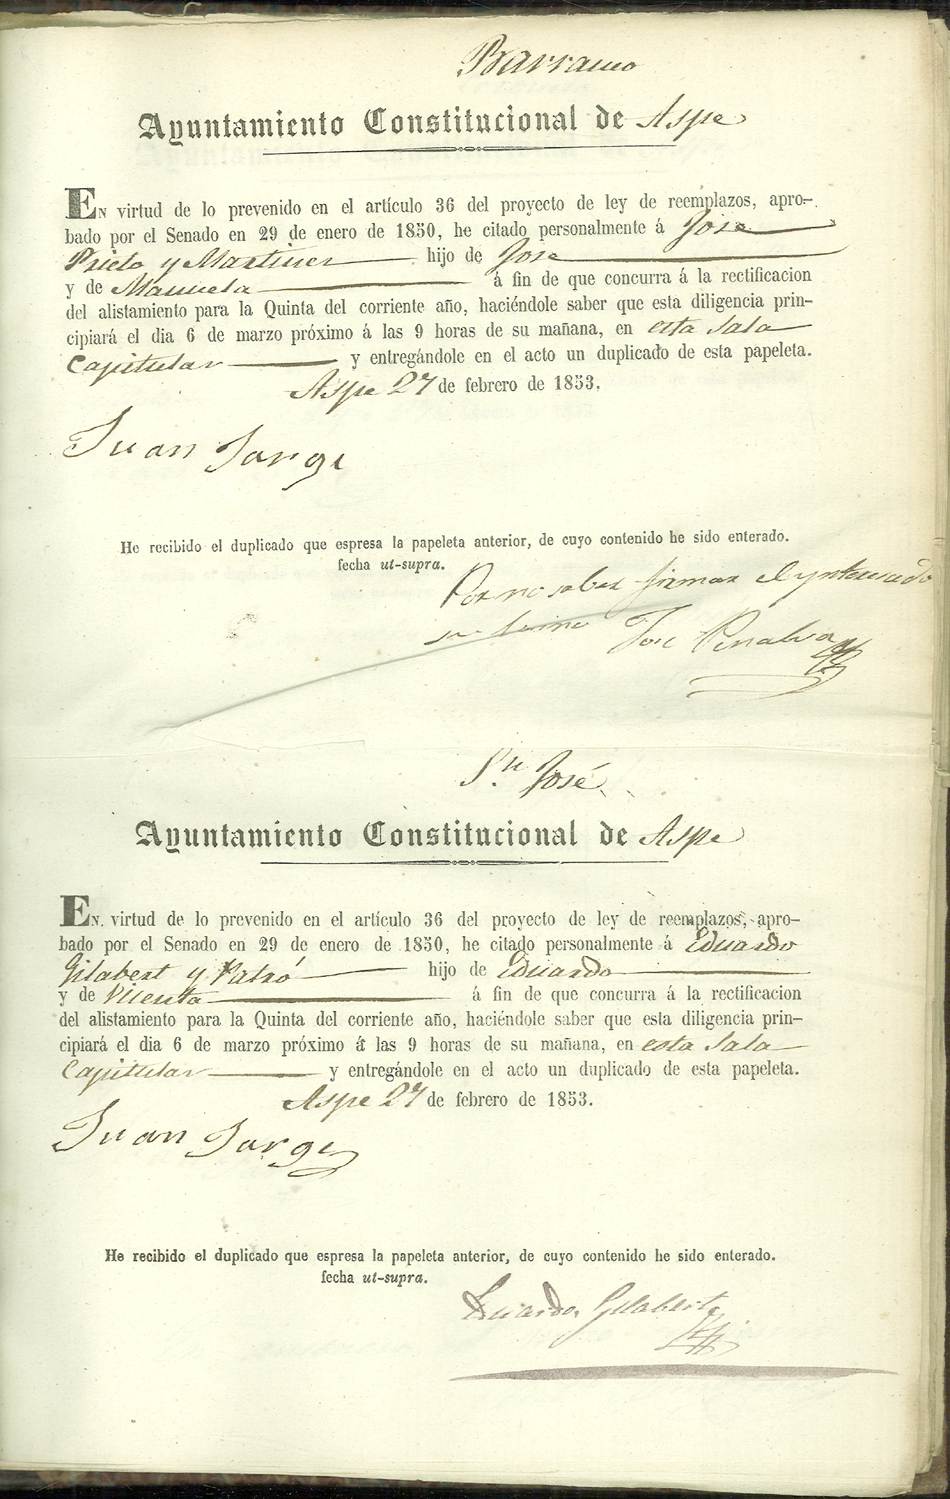 Barranco
Ayuntamiento Constitucional de Aspe
En virtud de lo prevenido en el artículo 36 del proyecto de ley de reemplazos, apro-
bado por el Senado en 29 de enero de 1850, he citado personalmente á Jose
Prieto y Martinez hijo de Jose
y de Manuela á fin de que concurra á la rectificacion
del alistamiento para la Quinta del corriente año, haciéndole saber que esta diligencia prin-
cipiará el dia 6 de marzo próximo á las 9 horas de su mañana, en esta Sala
Capitular y entregándole en el acto un duplicado de esta papeleta.
Aspe 27 de febrero de 1853.
Juan Jorge
He recibido el duplicado que espresa la papeleta anterior, de cuyo contenido he sido enterado.
fecha ut-supra.
Por no saber firmar el ynteresado
Jose Penalva
Sn José
Ayuntamiento Constitucional de Aspe
En virtud de lo prevenido en el artículo 36 del proyecto de ley de reemplazos, apro-
bado por el Senado en 29 de enero de 1850, he citado personalmente á Eduardo
Gilabert y Patró hijo de Eduardo
y de Vicenta á fin de que concurra á la rectificacion
del alistamiento para la Quinta del corriente año, haciéndole saber que esta diligencia prin-
cipiará el dia 6 de marzo próximo á las 9 horas de su mañana, en esta Sala
Capitular y entregándole en el acto un duplicado de esta papeleta.
Aspe 27 de febrero de 1853.
Juan Jorge
He recibido el duplicado que espresa la papeleta anterior, de cuyo contenido he sido enterado.
fecha ut-supra.
Eduardo Gilabert